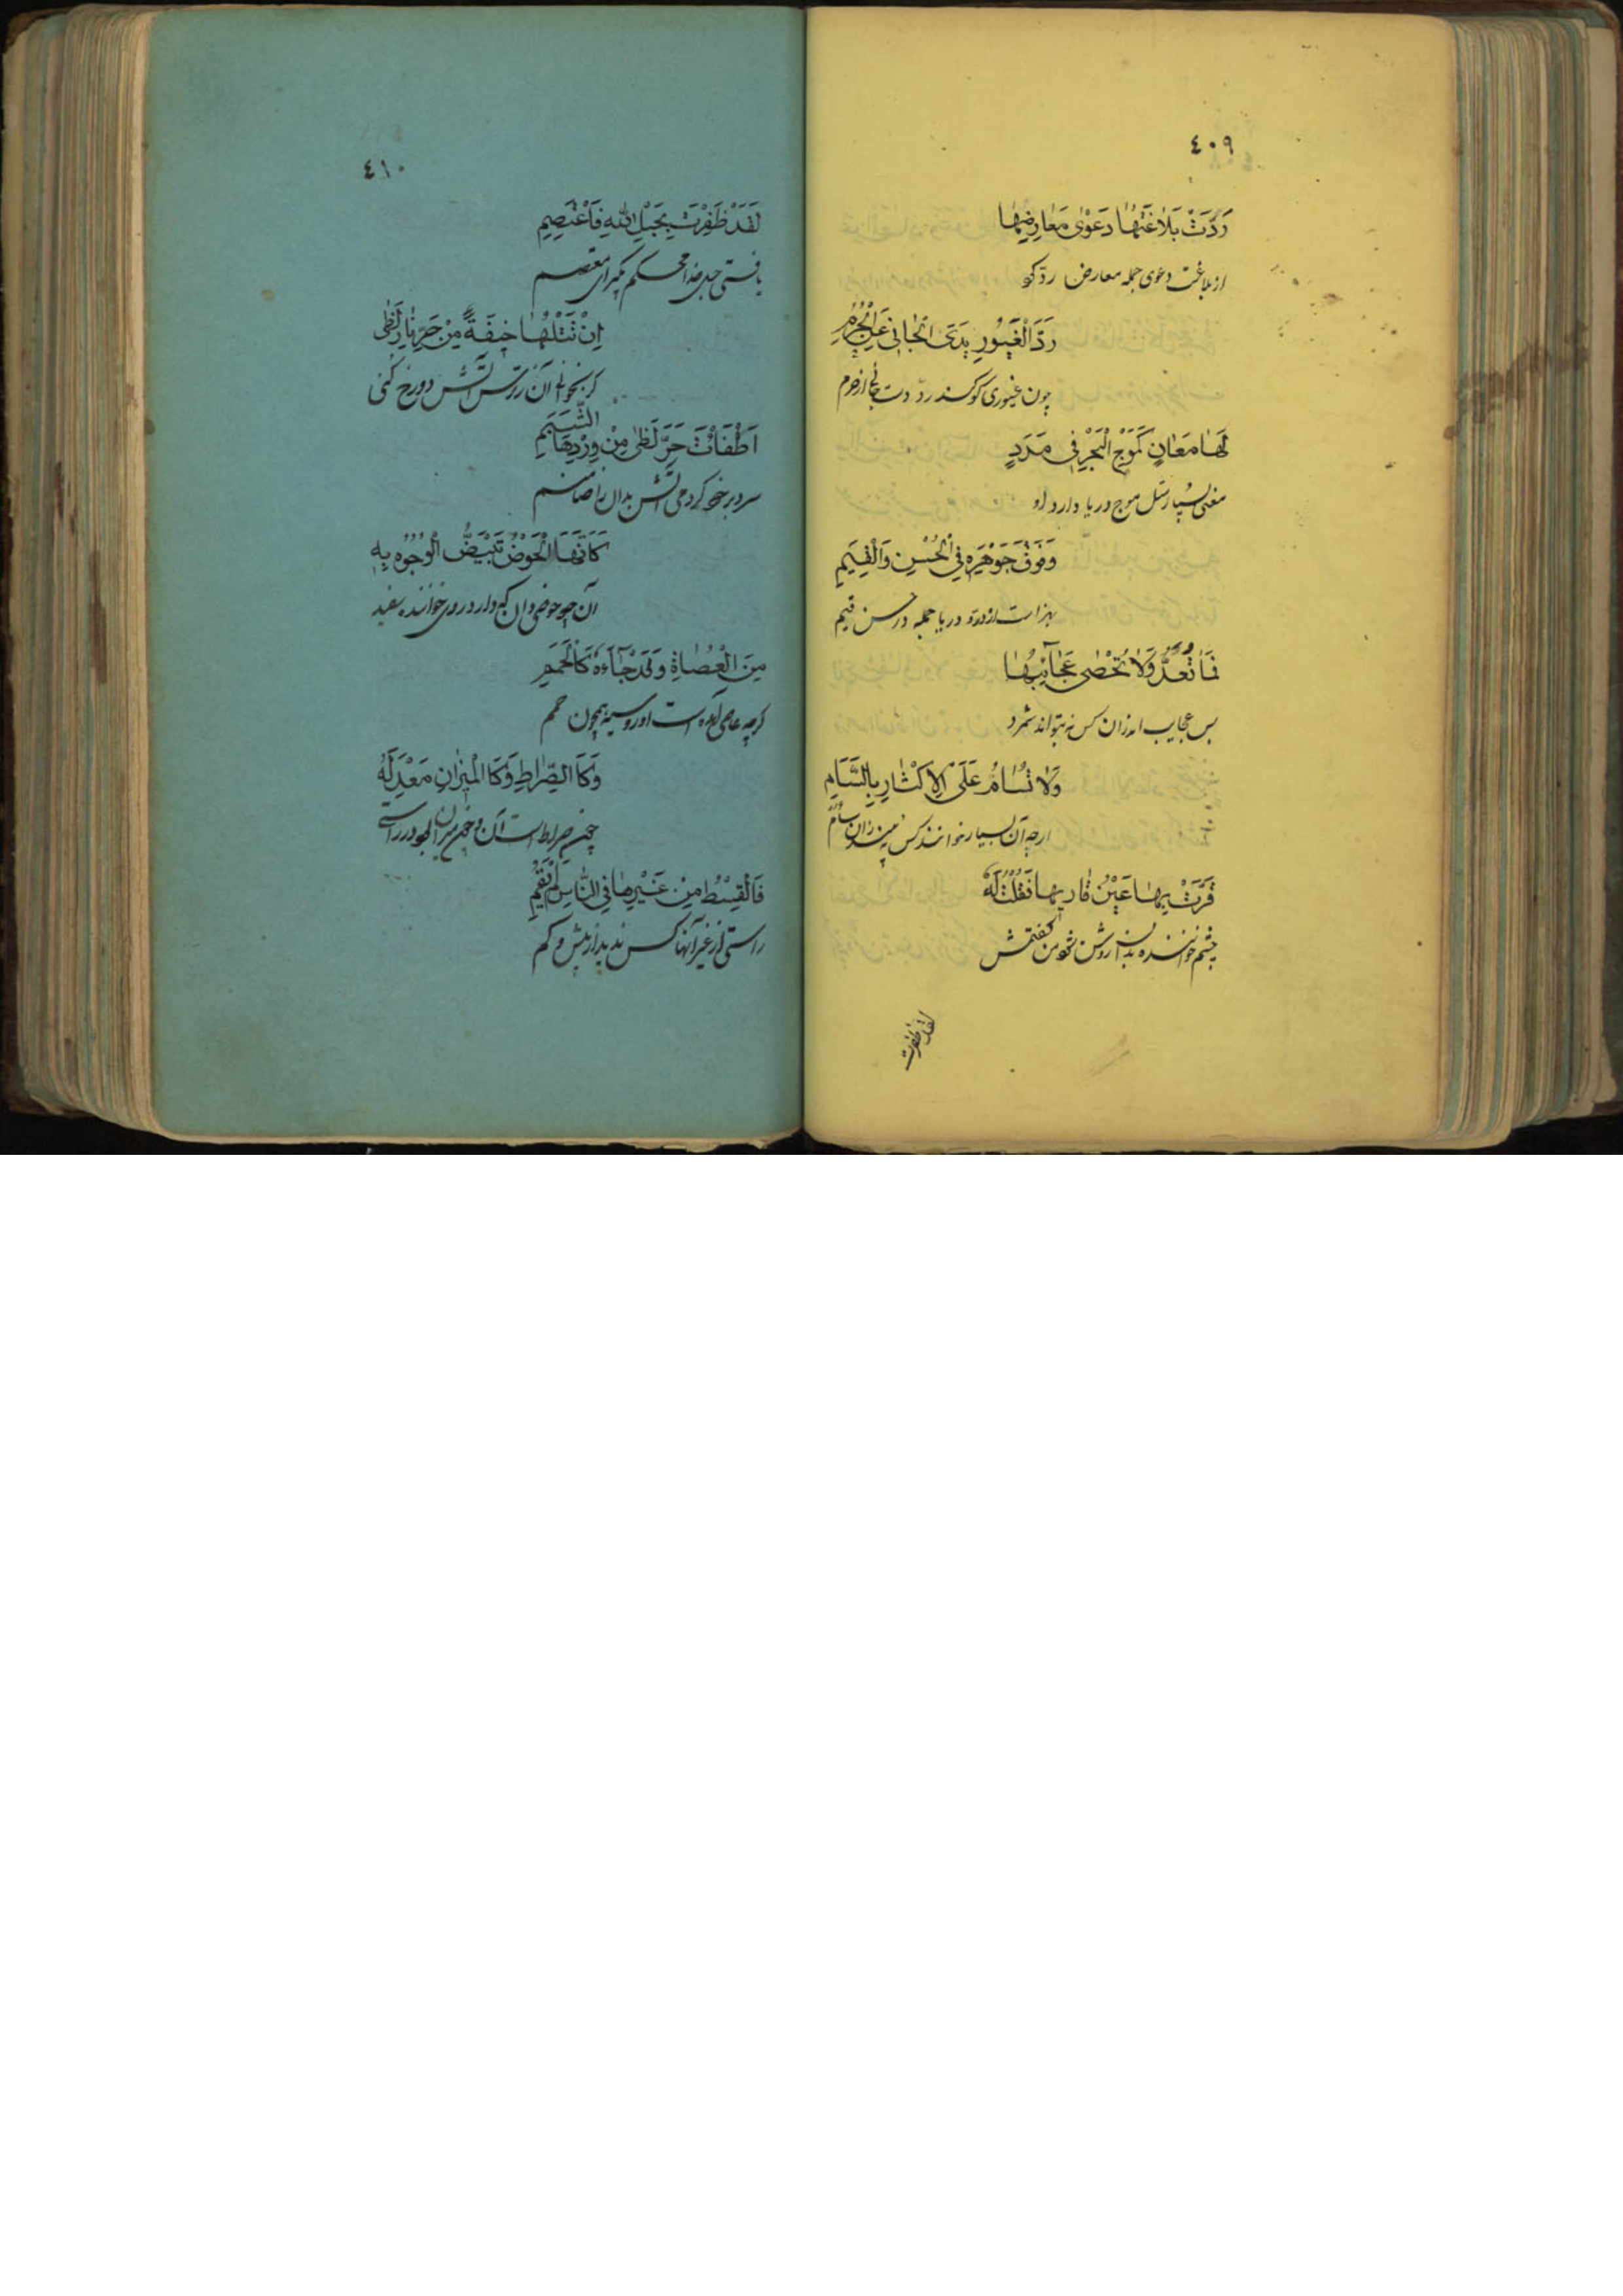 ٤٠٩
رَدَّتْ بَلَاغَتُهَا دَعْوٰى مَعَارِضِهَا
از بلاغت دعوی جمله معارض ردّ کو
رَدَّ الْغَيُورِ يَدَى الْجَانِى عَنِ الْحُرَمِ
چون غیوری کو کند ردّ دست جانی از حرم
لَهَا مَعَانٍ كَمَوْجِ الْبَحْرِ فِى مَدَدٍ
معنی بسیار مثل موج دریا دارد او
وَفَوْقَ جَوْهَرِهِ فِى الْحُسْنِ وَالْقِيَمِ
بهتر است از در دریا جمله در حسن قیم
فَمَا تُعَدُّ وَلَا تُحْصٰى عَجَائِبُهَا
بس عجایب اندران کس نه بتواند شمرد
وَلَا تُسَامُ عَلَى الْاِكْثَارِ بِالسَّاَمِ
ارچه آن بسیار خوانند کس نبیند زان سام
قَرَّتْ بِهَا عَيْنُ قَارِيهَا فَقُلْتُ لَهُ
چشم خواننده بدان روشن شود من گفتمش
لقد ظفرت
٤١٠
لَقَدْ ظَفِرْتَ بِحَبْلِ اللهِ فَاعْتَصِمِ
یافتی حبل خدا محکم بگیر ای معتصم
اِنْ تَتْلُهَا خِيفَةً مِنْ حَرِّ نَارِ لَظٰى
گر بخوانی آن ز ترس آتش دوزخ کنی
اَطْفَأْتَ حَرَّ لَظٰى مِنْ وِرْدِهَا الشَّبِمِ
سرد بر خود گرمی آتش بدان را ضامنم
كَاَنَّهَا الْحَوْضُ تَبْيَضُّ الْوُجُوهُ بِهِ
آن چو حوضی دان که دارد روی خواننده سفید
مِنَ الْعُصَاةِ وَقَدْ جَآءَهُ كَالْحُمَمِ
گرچه عاصی آمده است او رو سیه همچون حمم
وَكَالصِّرَاطِ وَكَالْمِيزَانِ مَعْدِلَةً
چون صراط است آن و چون میزان بود در راستی
فَالْقِسْطُ مِنْ غَيْرِهَا فِى النَّاسِ لَمْ يَقُمِ
راستی از غیر آنها کس ندید از بیش و کم